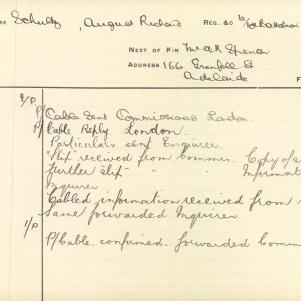 Schultz, August Richard REG. NO 10/Battalion
NEXT OF KIN Mr A R Spencer
ADDRESS 166 Grenfell St
Adelaide
P/ Cable Sent Commissons London.
P/ Cable Reply London.
Particulars sent Enquirer
Slip received from Commr. Copy of s
further slip " " "
Inquirer
Cabled information received from
Same forwarded Inquirer
P/Cable confirmed. forwarded Comm